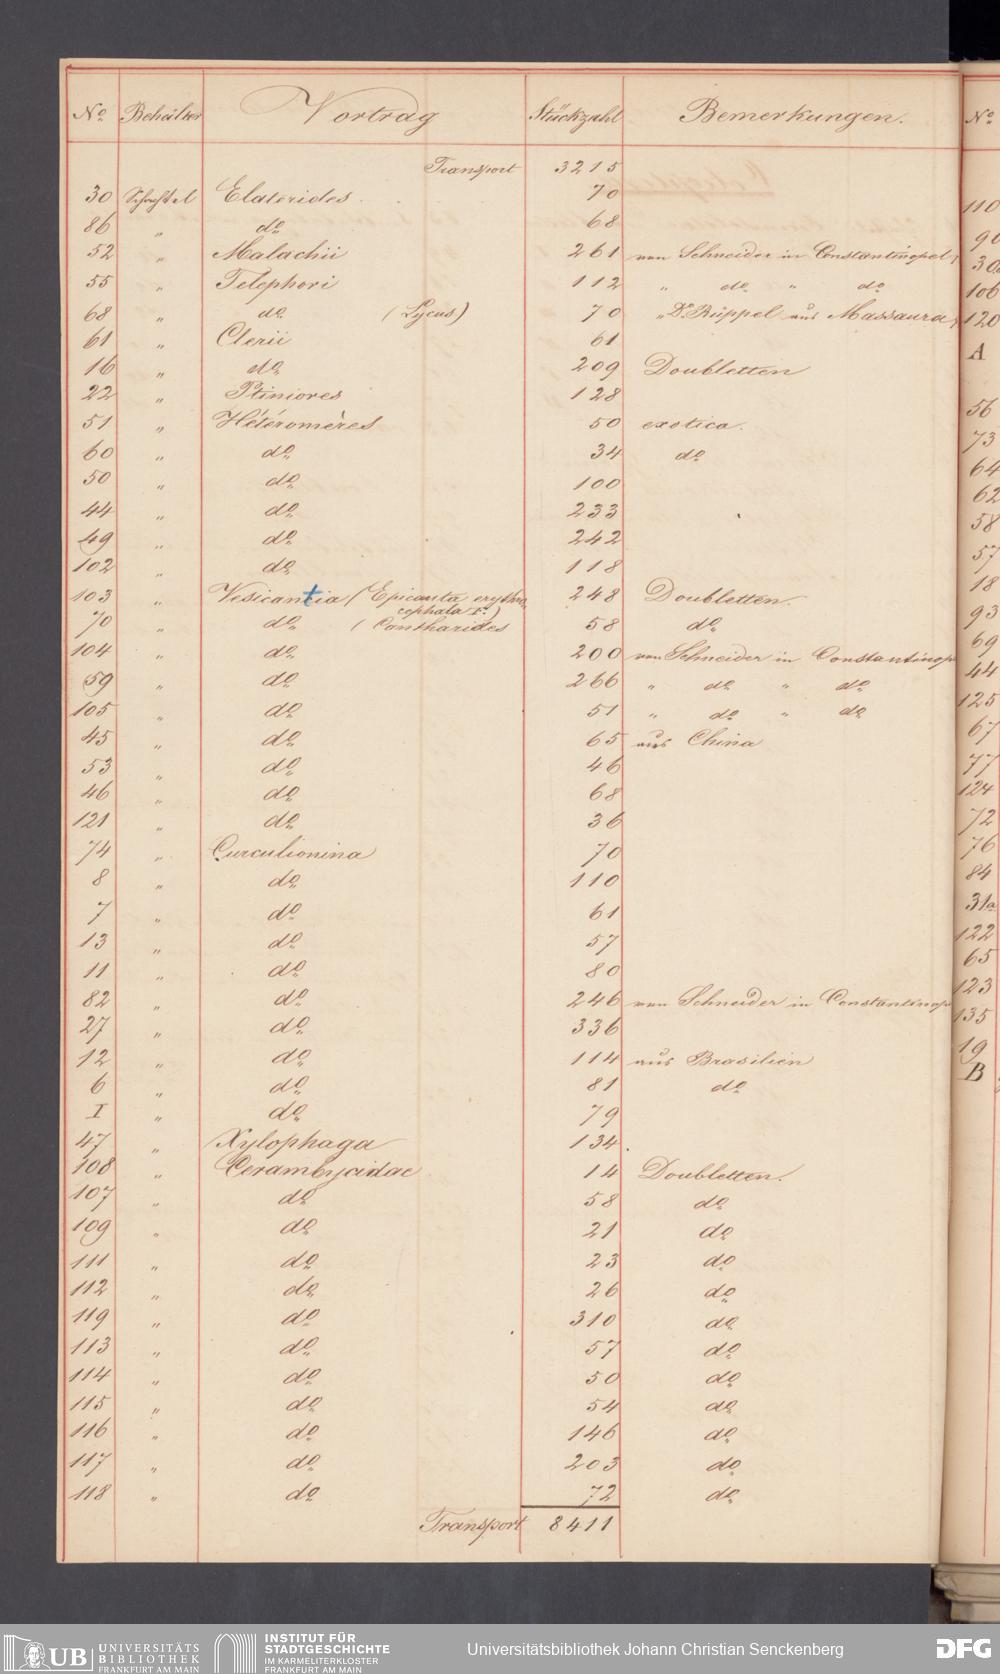 No. Behälter Vortrag Stückzahl Bemerkungen. No.
Transport 3215
30 Schachtel Elaterides. 70
86 " do 68
52 " Malachii 261 von Schneider in Constantinopel,
55 " Telephori 112 " do " do
68 " do (Lycus) 70 " Dr. Rüppel aus Massaura,
61 " Clerii 61
16 " do 209 Doubletten
22 " Ptiniores 128
51 " Hétéromères 50 exotica.
60 " do 34 do
50 " do 100
44 " do 233
49 " do 242
102 " do 118
103 " Vesicantia (Epicauta erythro
cephala F.) 248 Doubletten.
70 " do (Cantharides 58 do
104 " do 200 von Schneider in Constantinop
59 " do 266 " do " do
105 " do 51 " do " do
45 " do 65 aus China
53 " do 46
46 " do 68
121 " do 36
74 " Curculionina 70
8 " do 110
7 " do 61
13 " do 57
11 " do 80
82 " do 246 von Schneider in Constantinop
27 " do 336
12 " do 114 aus Brasilien
6 " do 81 do
I " do 79
47 " Xylophaga 134
108 " Cerambycidae 14 Doubletten.
107 " do 58 do
109 " do 21 do
111 " do 23 do
112 " do 26 do
119 " do 310 do
113 " do 57 do
114 " do 50 do
115 " do 54 do
116 " do 146 do
117 " do 203 do
118 " do 72 do
Transport 8411
110
90
106
120
A
56
73
64
62
58
57
18
93
69
44
125
67
77
124
72
76
84
31a
122
65
123
135
19
B
UB UNIVERSITÄTS
BIBLIOTHEK
FRANKFURT AM MAIN
INSTITUT FÜR
STADTGESCHICHTE
IM KARMELITERKLOSTER
FRANKFURT AM MAIN
Universitätsbibliothek Johann Christian Senckenberg
DFG